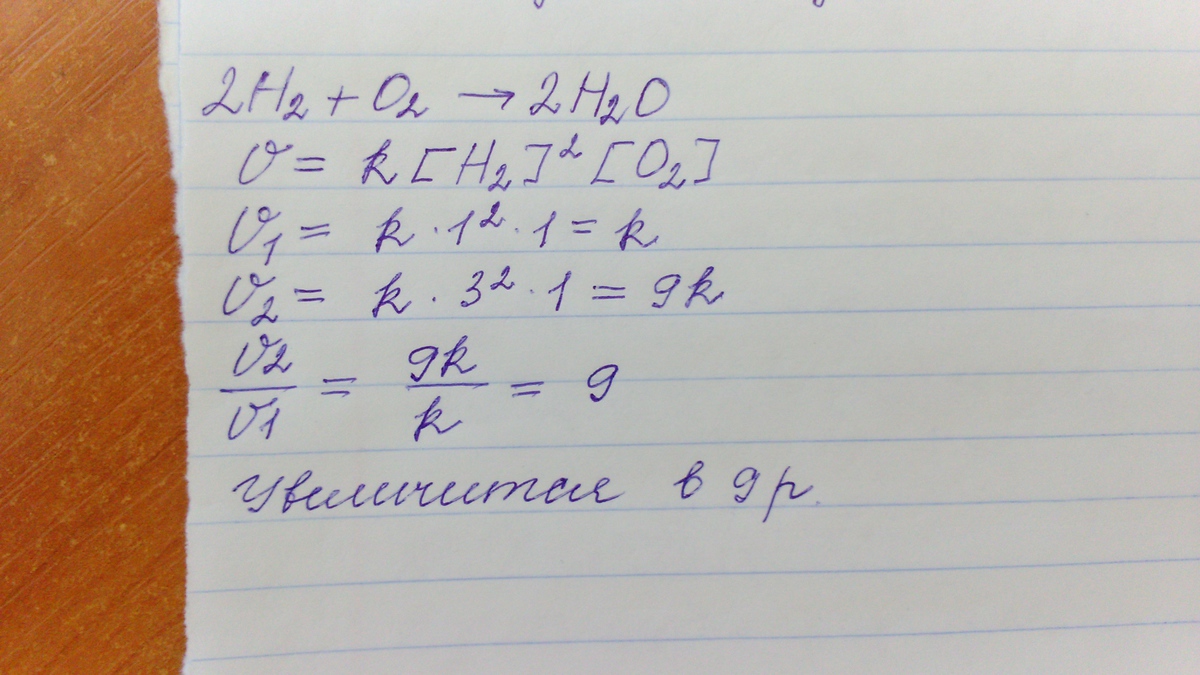 2H₂ + O₂ → 2H₂O
υ = k [H₂]² [O₂]
υ₁ = k · 1² · 1 = k
υ₂ = k · 3² · 1 = 9k
υ2/υ1 = 9k/k = 9
Увеличится в 9 р.